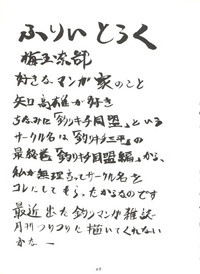 ふりいとろく
梅玉奈部
好きなマンガ家のこと
矢口高雄が好き
ちなみに「釣りキチ同盟」という
サークル名は「釣りキチ三平」の
最終巻「釣りキチ同盟編」から、
私が無理言ってサークル名を
コレにしてもらったからなのです
最近出た釣りマンガ雑誌
月刊つりコミに描いてくれない
かなー